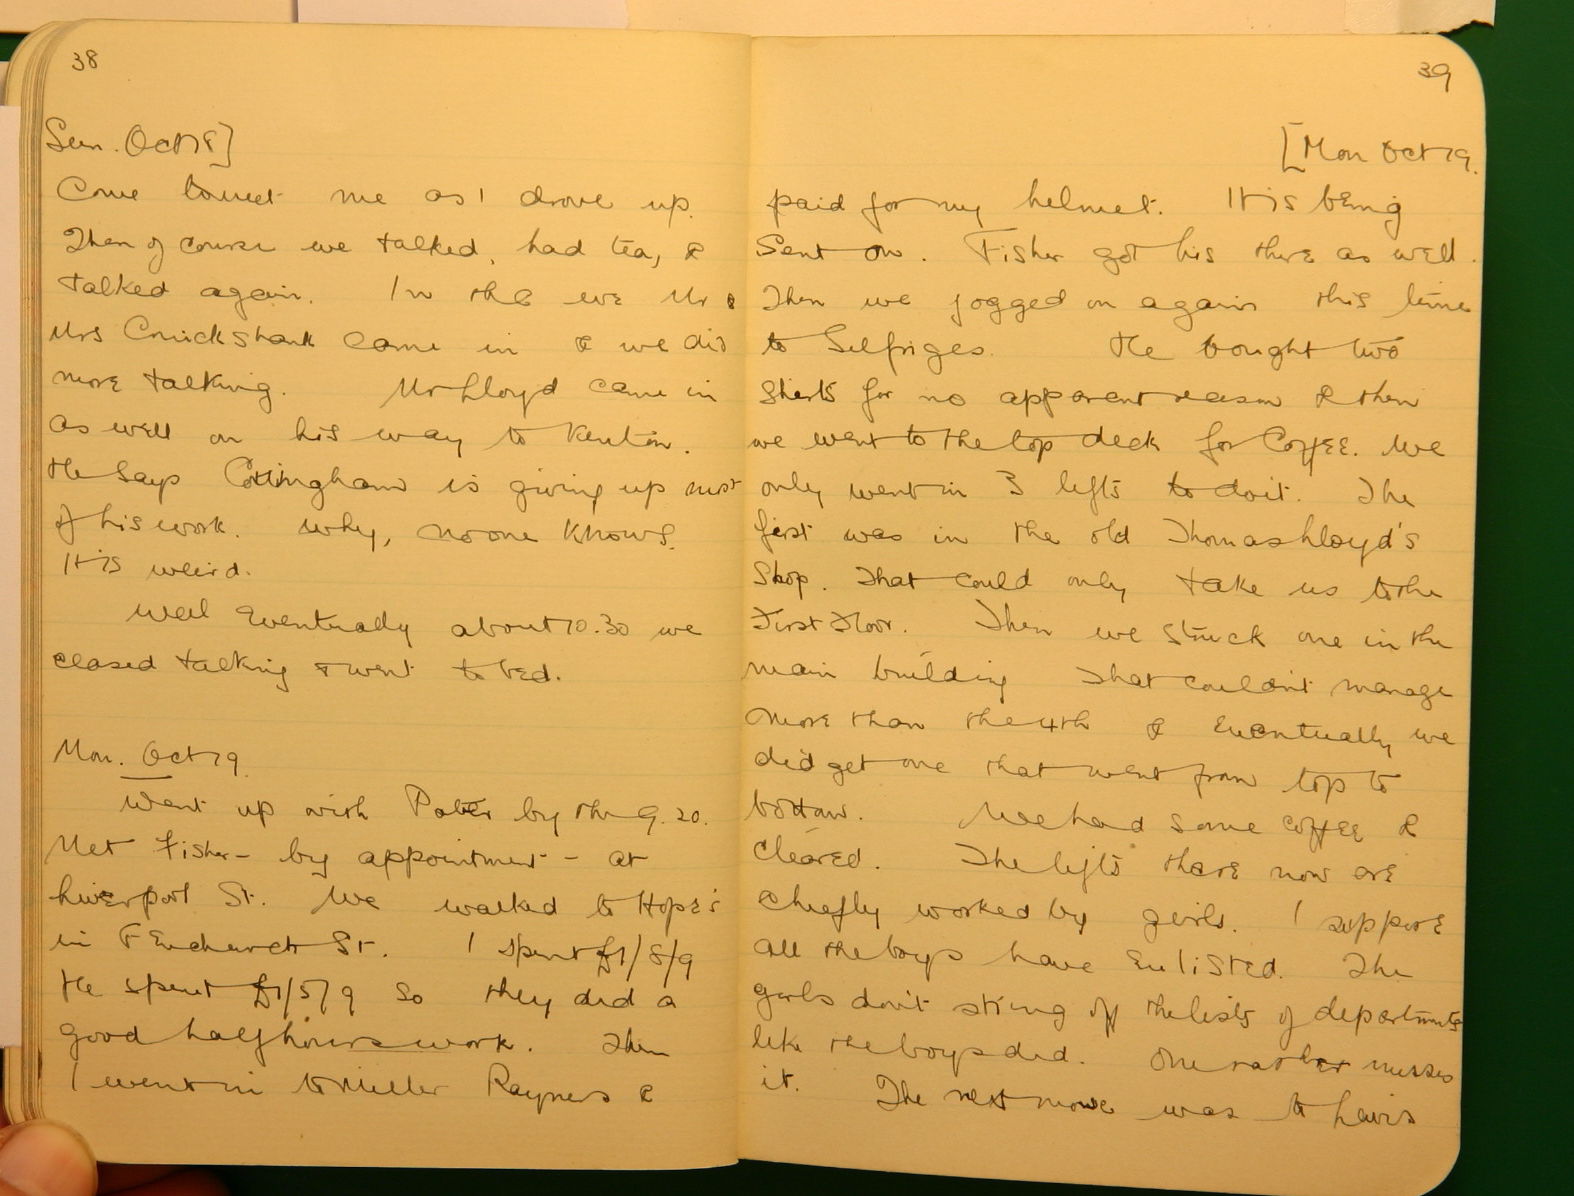 38
Sun. Oct 18]
Come to meet me as I drove up.
Then of course we talked, had tea, &
talked again. In the eve Mr &
Mrs Cruickshank came in & we did
more talking. Mr Lloyd came in
as well on his way to Kenton.
He says Cottingham is giving up most
of his work. Why, no one knows.
It is weird.
Well eventually about 10.30 we
ceased talking & went to bed.
Mon. Oct 19.
Went up with Pater by the 9.20.
Met Fisher - by appointment - at
Liverpool St. We walked to Hope's
in Fenchurch St. I spent £1/8/9
He spent £1/5/9 so they did a
good half hours work. Then
I went in to Miller Rayners &
39
[Mon Oct 19.
paid for my helmet. It is being
sent on. Fisher got his there as well.
Then we jogged on again this time
to Selfriges. He bought two
shirts for no apparent reason & then
we went to the top deck for Coffee. We
only went in 3 lifts to do it. The
first was in the old Thomas Lloyd's
Shop. That could only take us to the
First Floor. Then we struck one in the
main building That couldn't manage
more than the 4th & eventually we
did get one that went from top to
bottom. We had some coffee &
cleared. The lifts there now are
chiefly worked by girls. I suppose
all the boys have enlisted. The
girls don't string off the lists of departments
like the boys did. One rather misses
it. The next move was to